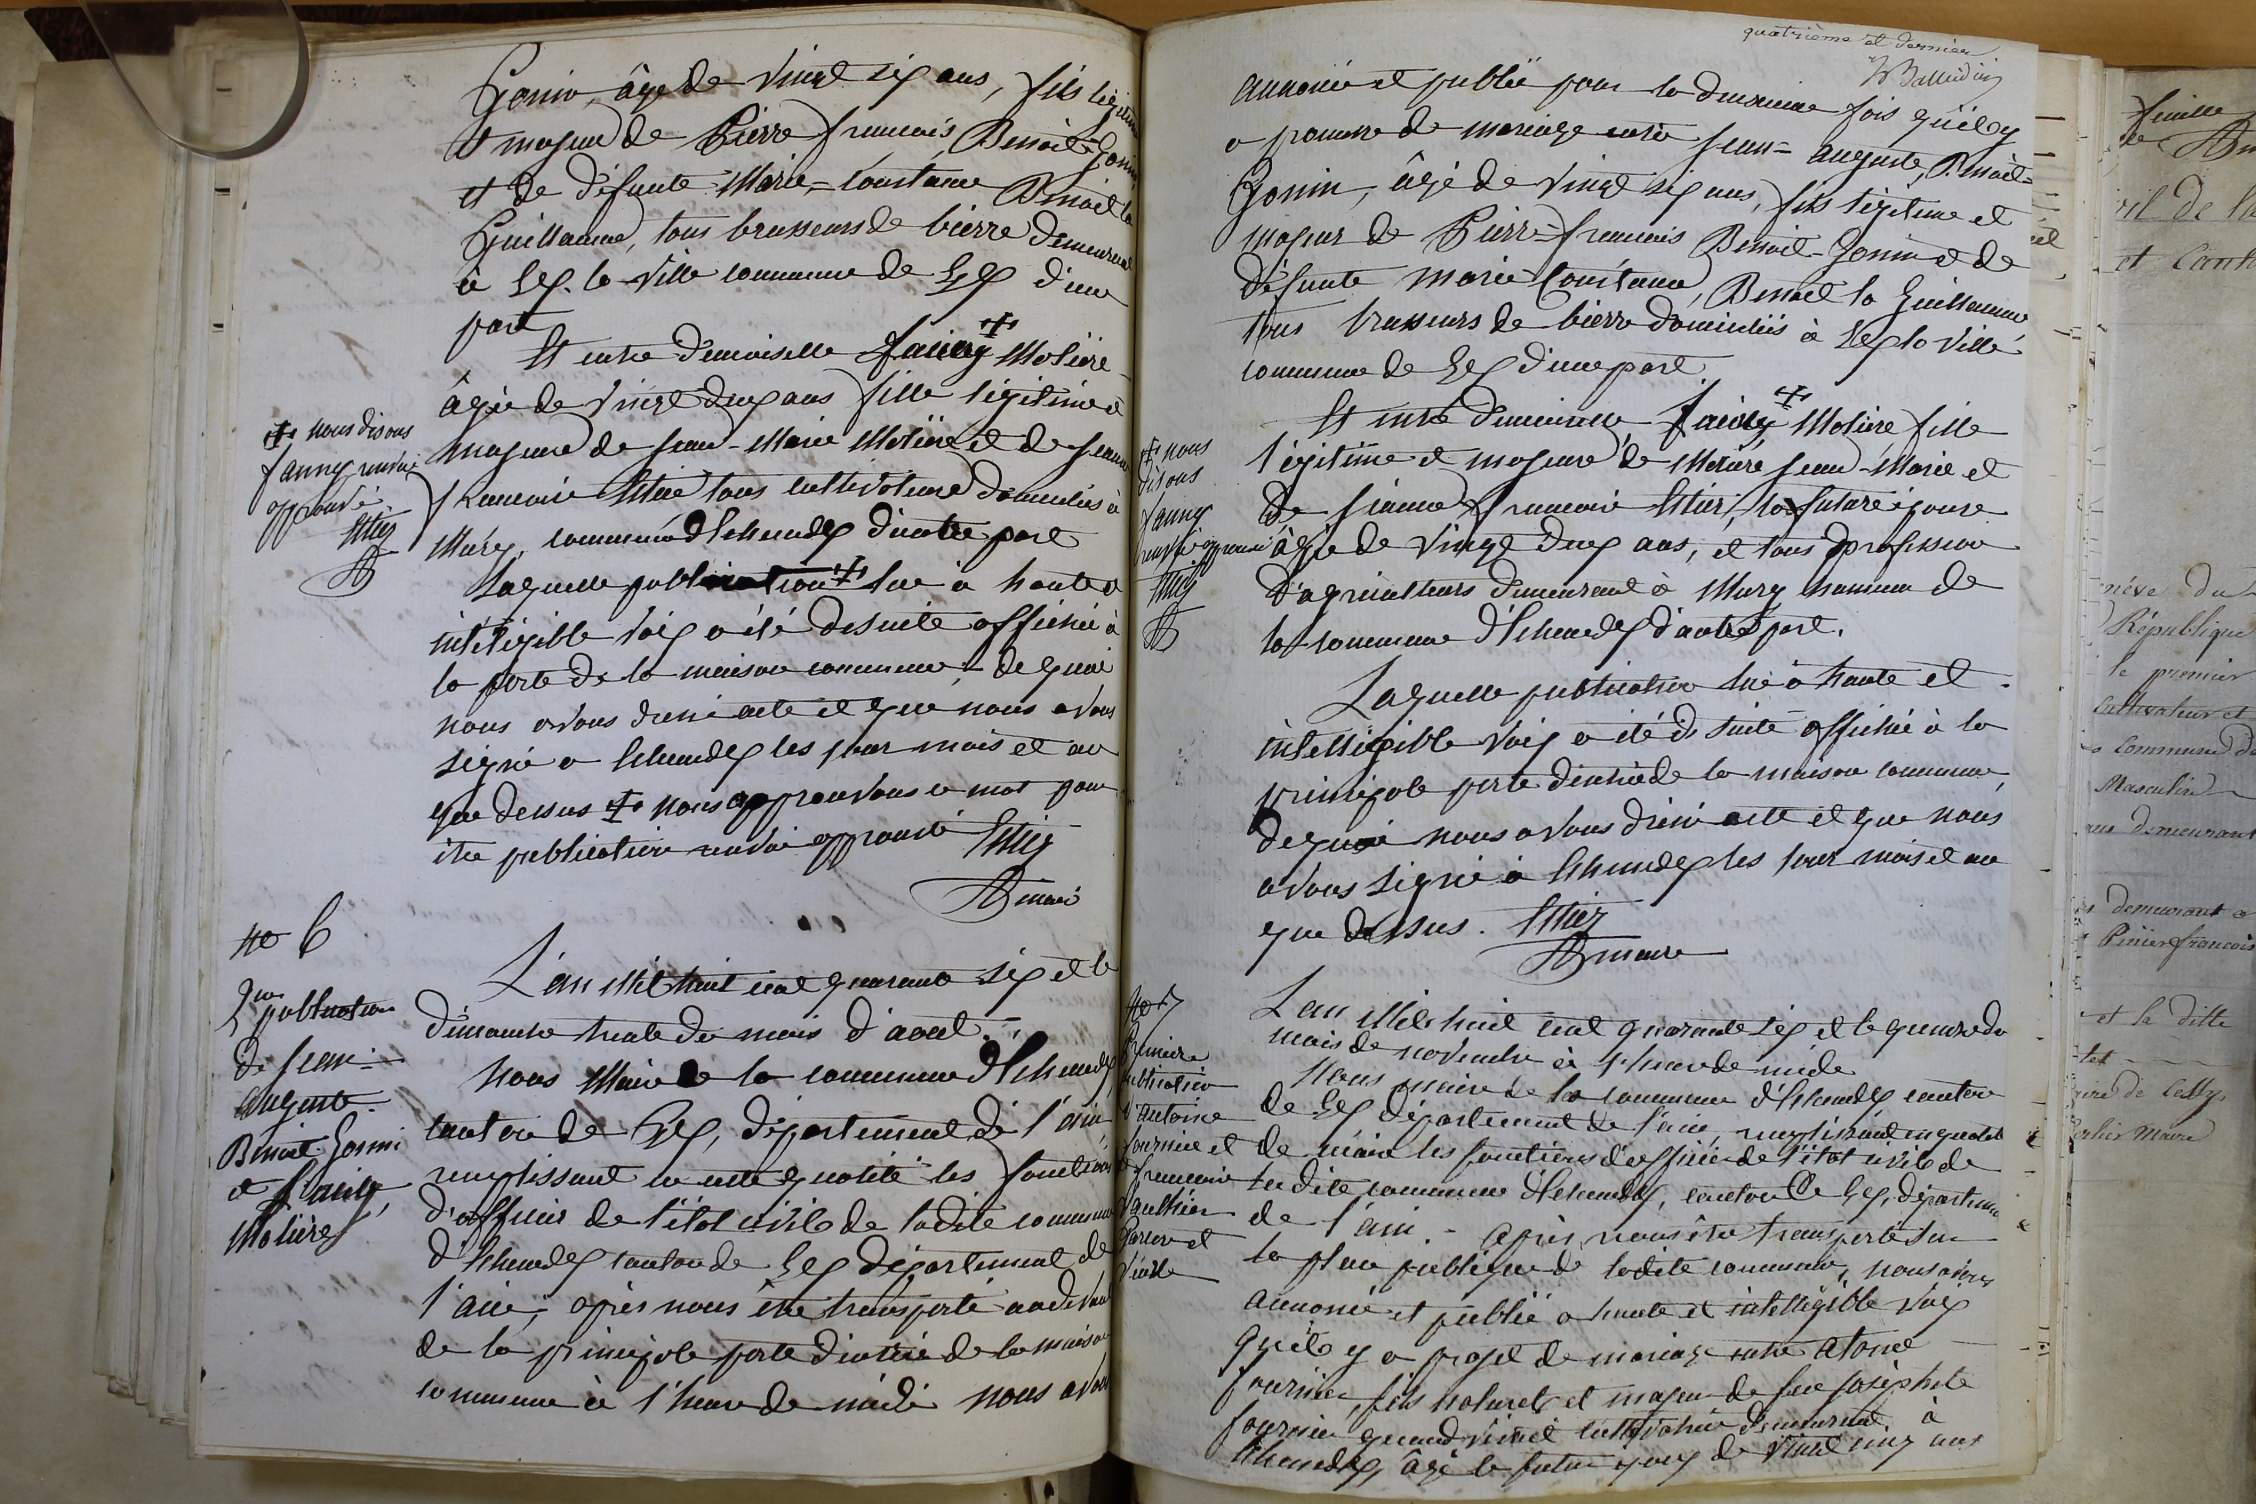 Gonin, âgé de vingt six ans, fils légitime
et majeur de Pierre françois Benoit-Gonin
et de défunte Marie-Constance Benoit la
Guillaume, tous brasseurs de bierre demeurant
à Gex-la-Ville commune de Gex d'une
part
Et entre demoiselle fanny Molière
âgée de vingt deux ans fille légitime et
majeure de Jean-Marie Molière et de Jeanne
francoise tous cultivateurs domiciliés à
Mury, commune d'Echenedex d'autre part
Laquelle publication lue à haute et
intelligible voix a été desuite affichée à
la porte de la maison commune, de quoi
nous avons dressé acte et que nous avons
signé à Echenedex les jour mois et an
que dessus + nous approuvons ce mot pour
être publication renvoi approuvé
maire
+ nous disons
fanny renvoi
approuvé
No 6
L'an Mil huit cent quarante six et le
dimanche trente du mois d'aout.
Nous Maire de la commune d'Echenedex
canton de Gex, département de l'ain,
remplissant en cette qualité les fonctions
d'officier de l'état civil de ladite commune
d'Echenedex canton de Gex département de
l'ain, après nous être transporté au devant
de la principale porte d'entrée de la maison
commune à l'heure de midi nous avons
2me publication
de Jean-
auguste
Benoit-Gonin
et fanny
Molière
quatrième et dernier
annoncé et publié pour la deuxième fois qu'il y
a promesse de mariage entre Jean-auguste, Benoit-
Gonin, âgé de vingt six ans, fils légitime et
majeur de Pierre-francois Benoit-Gonin et de
défunte Marie Constance, Benoit la Guillaume
tous brasseurs de bierre domiciliés à Gex la Ville
commune de Gex d'une part
Et entre demoiselle fanny Molière fille
légitime et majeure de Molière Jean-Marie et
de Jeanne francoise la future épouse
âgée de vingt deux ans, et tous profession
d'agriculteurs demeurant à Mury hameau de
la commune d'Echenedex d'autre part.
Laquelle publication lue à haute et
intelligible voix a été de suite affichée à la
principale porte d'entrée de la maison commune,
de quoi nous avons dressé acte et que nous
avons signé à Echenedex les jour mois et an
que dessus.
maire
+ nous
disons
fanny
renvoi approuvé
No 7
L'an Mil huit cent quarante six et le quinze du
mois de novembre à l'heure de midi
Nous maire de la commune d'Echenedex canton
de Gex département de l'ain, remplissant en qualité
de maire les fonctions d'officier de l'état civil de
ladite commune d'Echenedex, canton de Gex, département
de l'ain. - après nous être transporté sur
la place publique de ladite commune, nous avons
annoncé et publié à haute et intelligible voix
qu'il y a projet de mariage entre
fournier, fils naturel et majeur de feue Josephte
fournier quand vivait cultivatrice demeurant à
Echenedex, âgé le futur époux de vingt cinq ans
Première
publication
d'antoine
fournier et
francoise
Gauthier
Garcon et